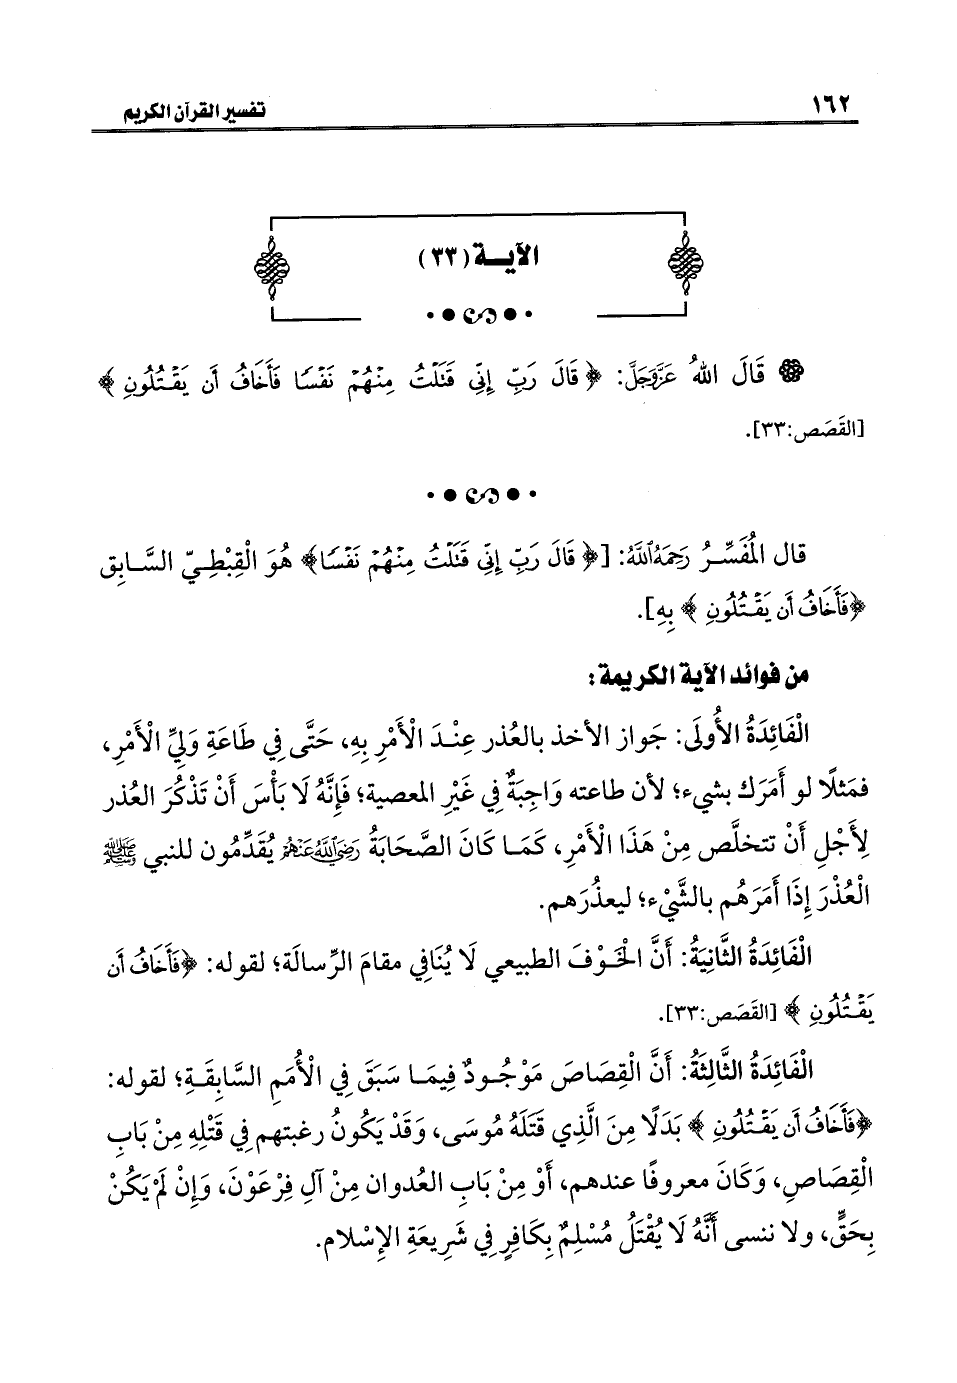 ١٦٢
تفسير القرآن الكريم
الآيـــة (٣٣)
قَالَ اللهُ عَزَّوَجَلَّ: ﴿ قَالَ رَبِّ إِنِّي قَتَلْتُ مِنْهُمْ نَفْسًا فَأَخَافُ أَن يَقْتُلُونِ ﴾
[القَصَص:٣٣].
قال المُفَسِّرُ رَحِمَهُ اللَّهُ: [﴿ قَالَ رَبِّ إِنِّي قَتَلْتُ مِنْهُمْ نَفْسًا﴾ هُوَ الْقِبْطِيّ السَّابِق
﴿فَأَخَافُ أَن يَقْتُلُونِ ﴾ بِهِ].
من فوائد الآية الكريمة:
الْفَائِدَةُ الأُولَى: جَواز الأخذ بالعُذر عِنْدَ الْأَمْرِ بِهِ، حَتَّى فِي طَاعَةِ وَلِيِّ الْأَمْرِ،
فمَثلًا لو أَمَرَك بشيء؛ لأن طاعته وَاجِبَةٌ فِي غَيْرِ المعصية؛ فَإِنَّهُ لَا بَأْسَ أَنْ تَذْكُرَ العُذر
لِأَجْلِ أَنْ تتخلَّص مِنْ هَذَا الْأَمْرِ، كَمَا كَانَ الصَّحَابَةُ رَضِيَ اللَّهُ عَنْهُمْ يُقَدِّمُون للنبي ﷺ
الْعُذْرَ إِذَا أَمَرَهُم بالشَّيْء؛ ليعذُرَهم.
الْفَائِدَةُ الثَّانِيَةُ: أَنَّ الخَوْفَ الطبيعي لَا يُنَافِي مقامَ الرِّسالَة؛ لقوله: ﴿فَأَخَافُ أَن
يَقْتُلُونِ ﴾ [القَصَص:٣٣].
الْفَائِدَةُ الثَّالِثَةُ: أَنَّ الْقِصَاصَ مَوْجُودٌ فِيمَا سَبَقَ فِي الْأُمَمِ السَّابِقَةِ؛ لقوله:
﴿فَأَخَافُ أَن يَقْتُلُونِ ﴾ بَدَلًا مِنَ الَّذِي قَتَلَهُ مُوسَى، وَقَدْ يَكُونُ رغبتهم فِي قَتْلِهِ مِنْ بَابِ
الْقِصَاصِ، وَكَانَ معروفًا عندهم، أَوْ مِنْ بَابِ العُدوان مِنْ آلِ فِرْعَوْنَ، وَإِنْ لَمْ يَكُنْ
بِحَقٍّ، ولا ننسى أَنَّهُ لَا يُقْتَلُ مُسْلِمٌ بِكَافِرٍ فِي شَرِيعَةِ الإِسْلام.